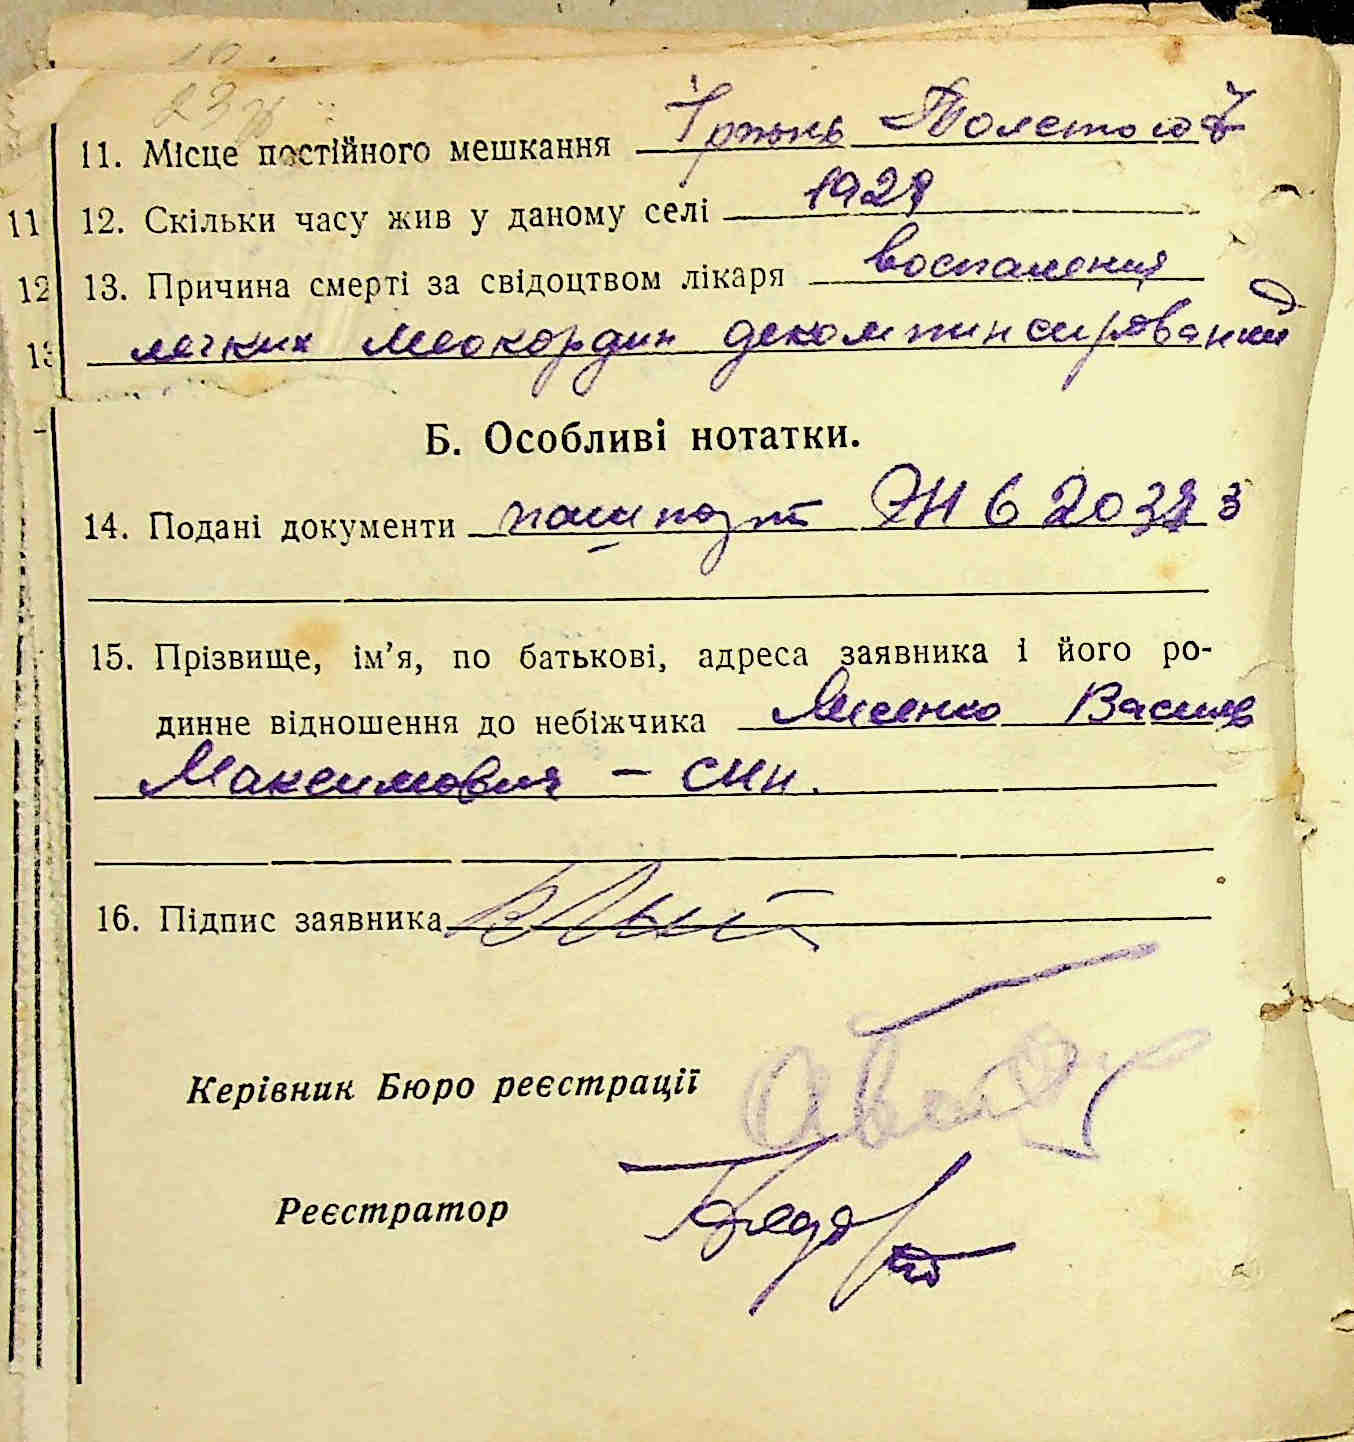 23
11. Місце постійного мешкання Ірпень Толстого 7
11 12. Скільки часу жив у даному селі 1928
12 13. Причина смерті за свідоцтвом лікаря воспаления
13 легких меокордин декомпинсирований
Б. Особливі нотатки.
14. Подані документи пашпорт ЭН 6 20323
15. Прізвище, ім’я, по батькові, адреса заявника і його ро-
динне відношення до небіжчика Лисенко Василь
Максимович – син.
16. Підпис заявника
Керівник Бюро реєстрації
Реєстратор